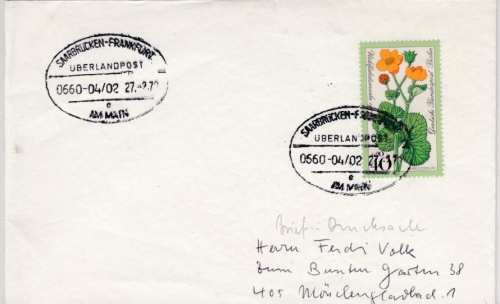 SAARBRÜCKEN-FRANKFURT
ÜBERLANDPOST
0660-04/02 27.
e
AM MAIN
Deutsche Bundespost Berlin
SAARBRÜCKEN-FRANKFURT
ÜBERLANDPOST
0660-04/02 27
e
AM MAIN
10
Brief-Drucksache
Herrn Ferdi Volk
Zum Bunten Garten 38
405 Mönchengladbach 1